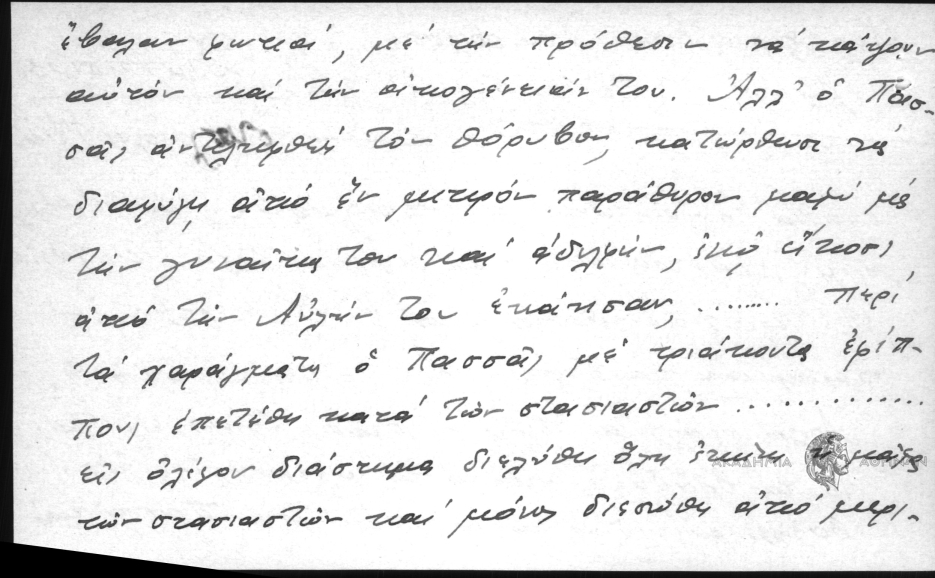 ἔβαλαν φωτιά, μέ τήν πρόθεσιν νά καύσουν
αὐτόν καί τήν οἰκογένειάν του. Ἀλλ' ὁ Πασ-
σᾶς ἀντιληφθείς τόν θόρυβον, κατώρθωσε νά
διαφύγῃ ἀπό ἕν μικρόν παράθυρον μαζί μέ
τήν γυναῖκα του καί ἀδελφήν, ἐνῷ εἴκοσι
ἀπό τήν Αὐλήν του ἐκάησαν, ........ Περί
τά χαράγματα ὁ Πασσᾶς μέ τριάκοντα ἐφίπ-
πους ἐπετέθη κατά τῶν στασιαστῶν ..............
εἰς ὀλίγον διάστημα διελύθη ὅλη ἐκείνη ἡ μᾶζα
τῶν στασιαστῶν καί μόνος διεσώθη ἀπό μερι-
ΑΚΑΔΗΜΙΑ ΑΘΗΝΩΝ